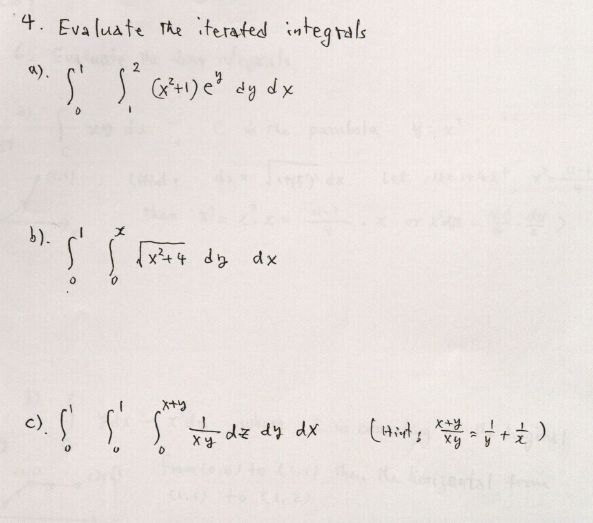 4. Evaluate the iterated integrals
a). ∫₀¹ ∫₁² (x²+1) eʸ dy dx
b). ∫₀¹ ∫₀ˣ √(x²+4) dy dx
c). ∫₀¹ ∫₀¹ ∫₀ˣ⁺ʸ 1/xy dz dy dx (Hint: x+y/xy = 1/y + 1/x)